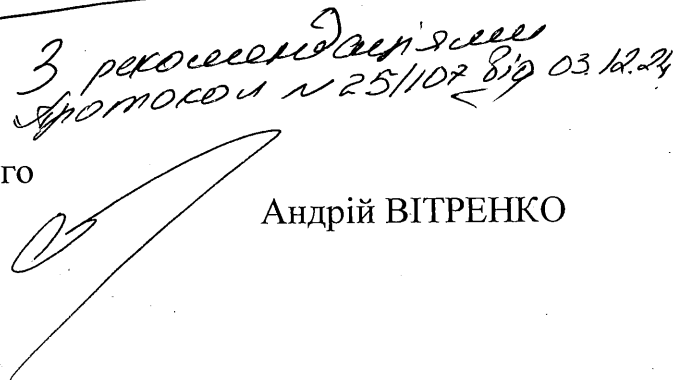 З рекомендаціями
Протокол N 25/107 від 03.12.24
го
Андрій ВІТРЕНКО